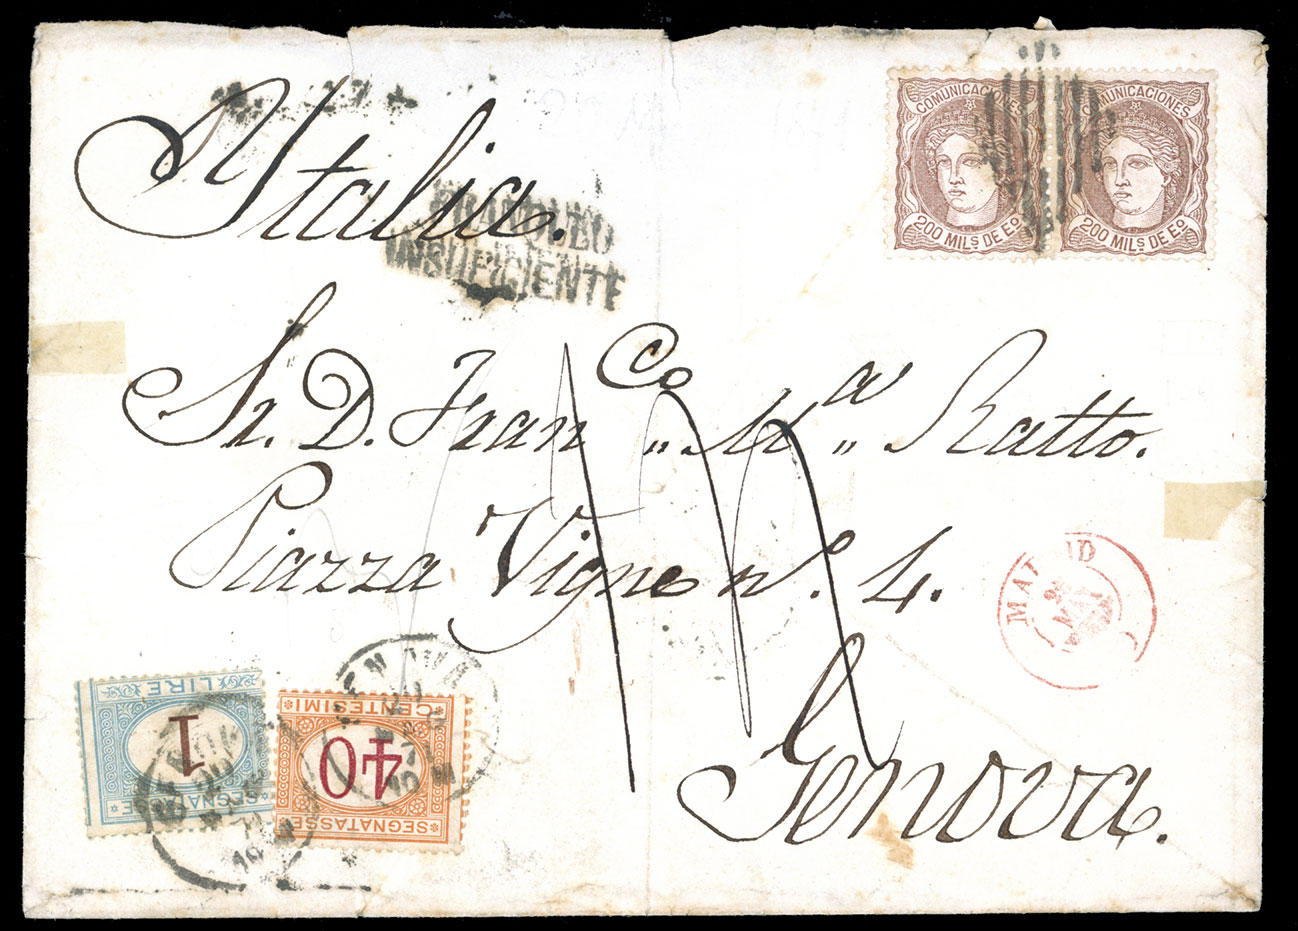 COMUNICACIONES COMUNICACIONES
200 MILS DE Eo 200 MILS DE Eo
Italia.
FRANQUEO
INSUFICIENTE
Sr. D. Franco „ Ma „ Ratto.
Piazza Vigne no. 4.
Genova.
MADRID
LIRE
1
SEGNATASSE
CENTESIMI
40
SEGNATASSE
GENOVA